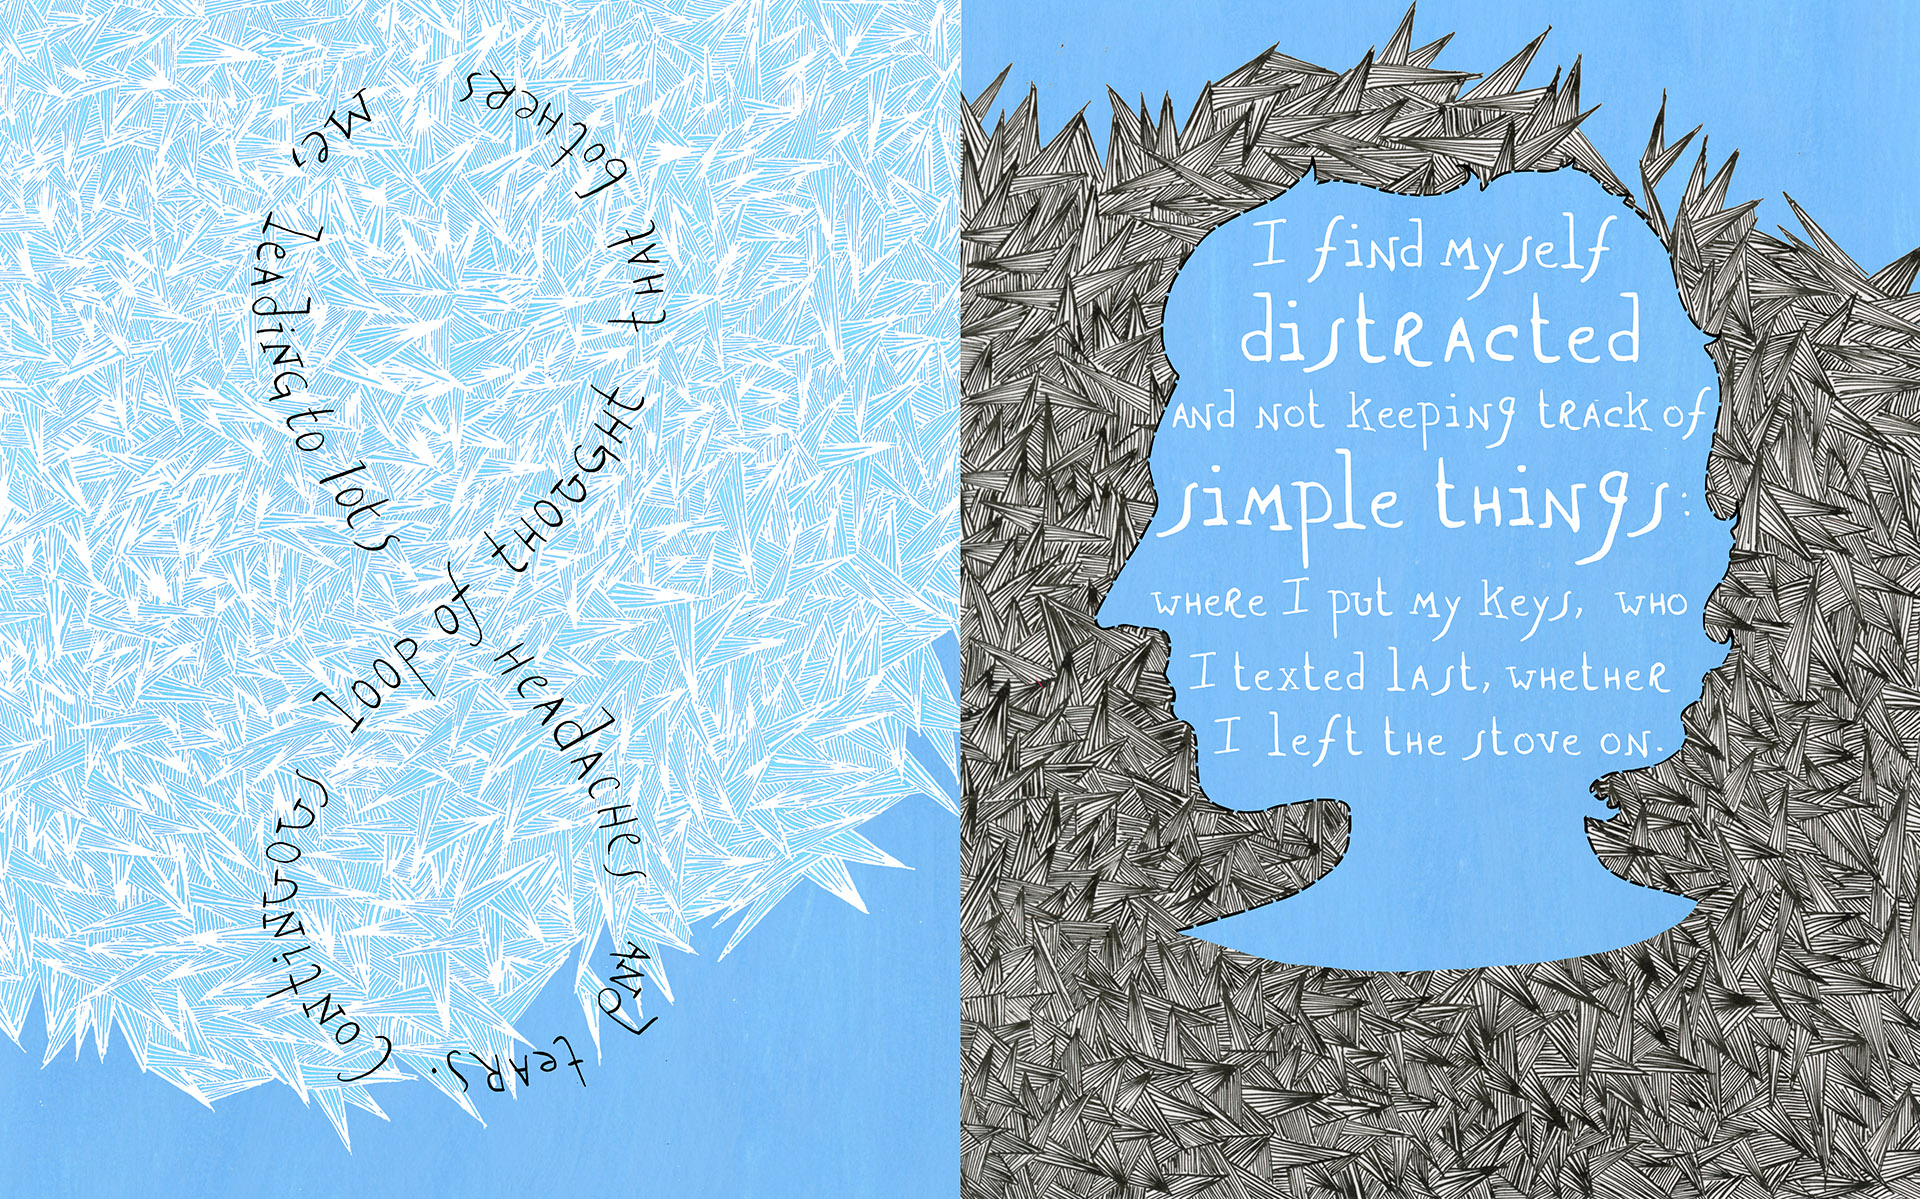 Continuous loop of thought that bothers me, leading to lots of headaches and tears.
I find myself
distracted
and not keeping track of
simple things:
where I put my keys, who
I texted last, whether
I left the stove on.